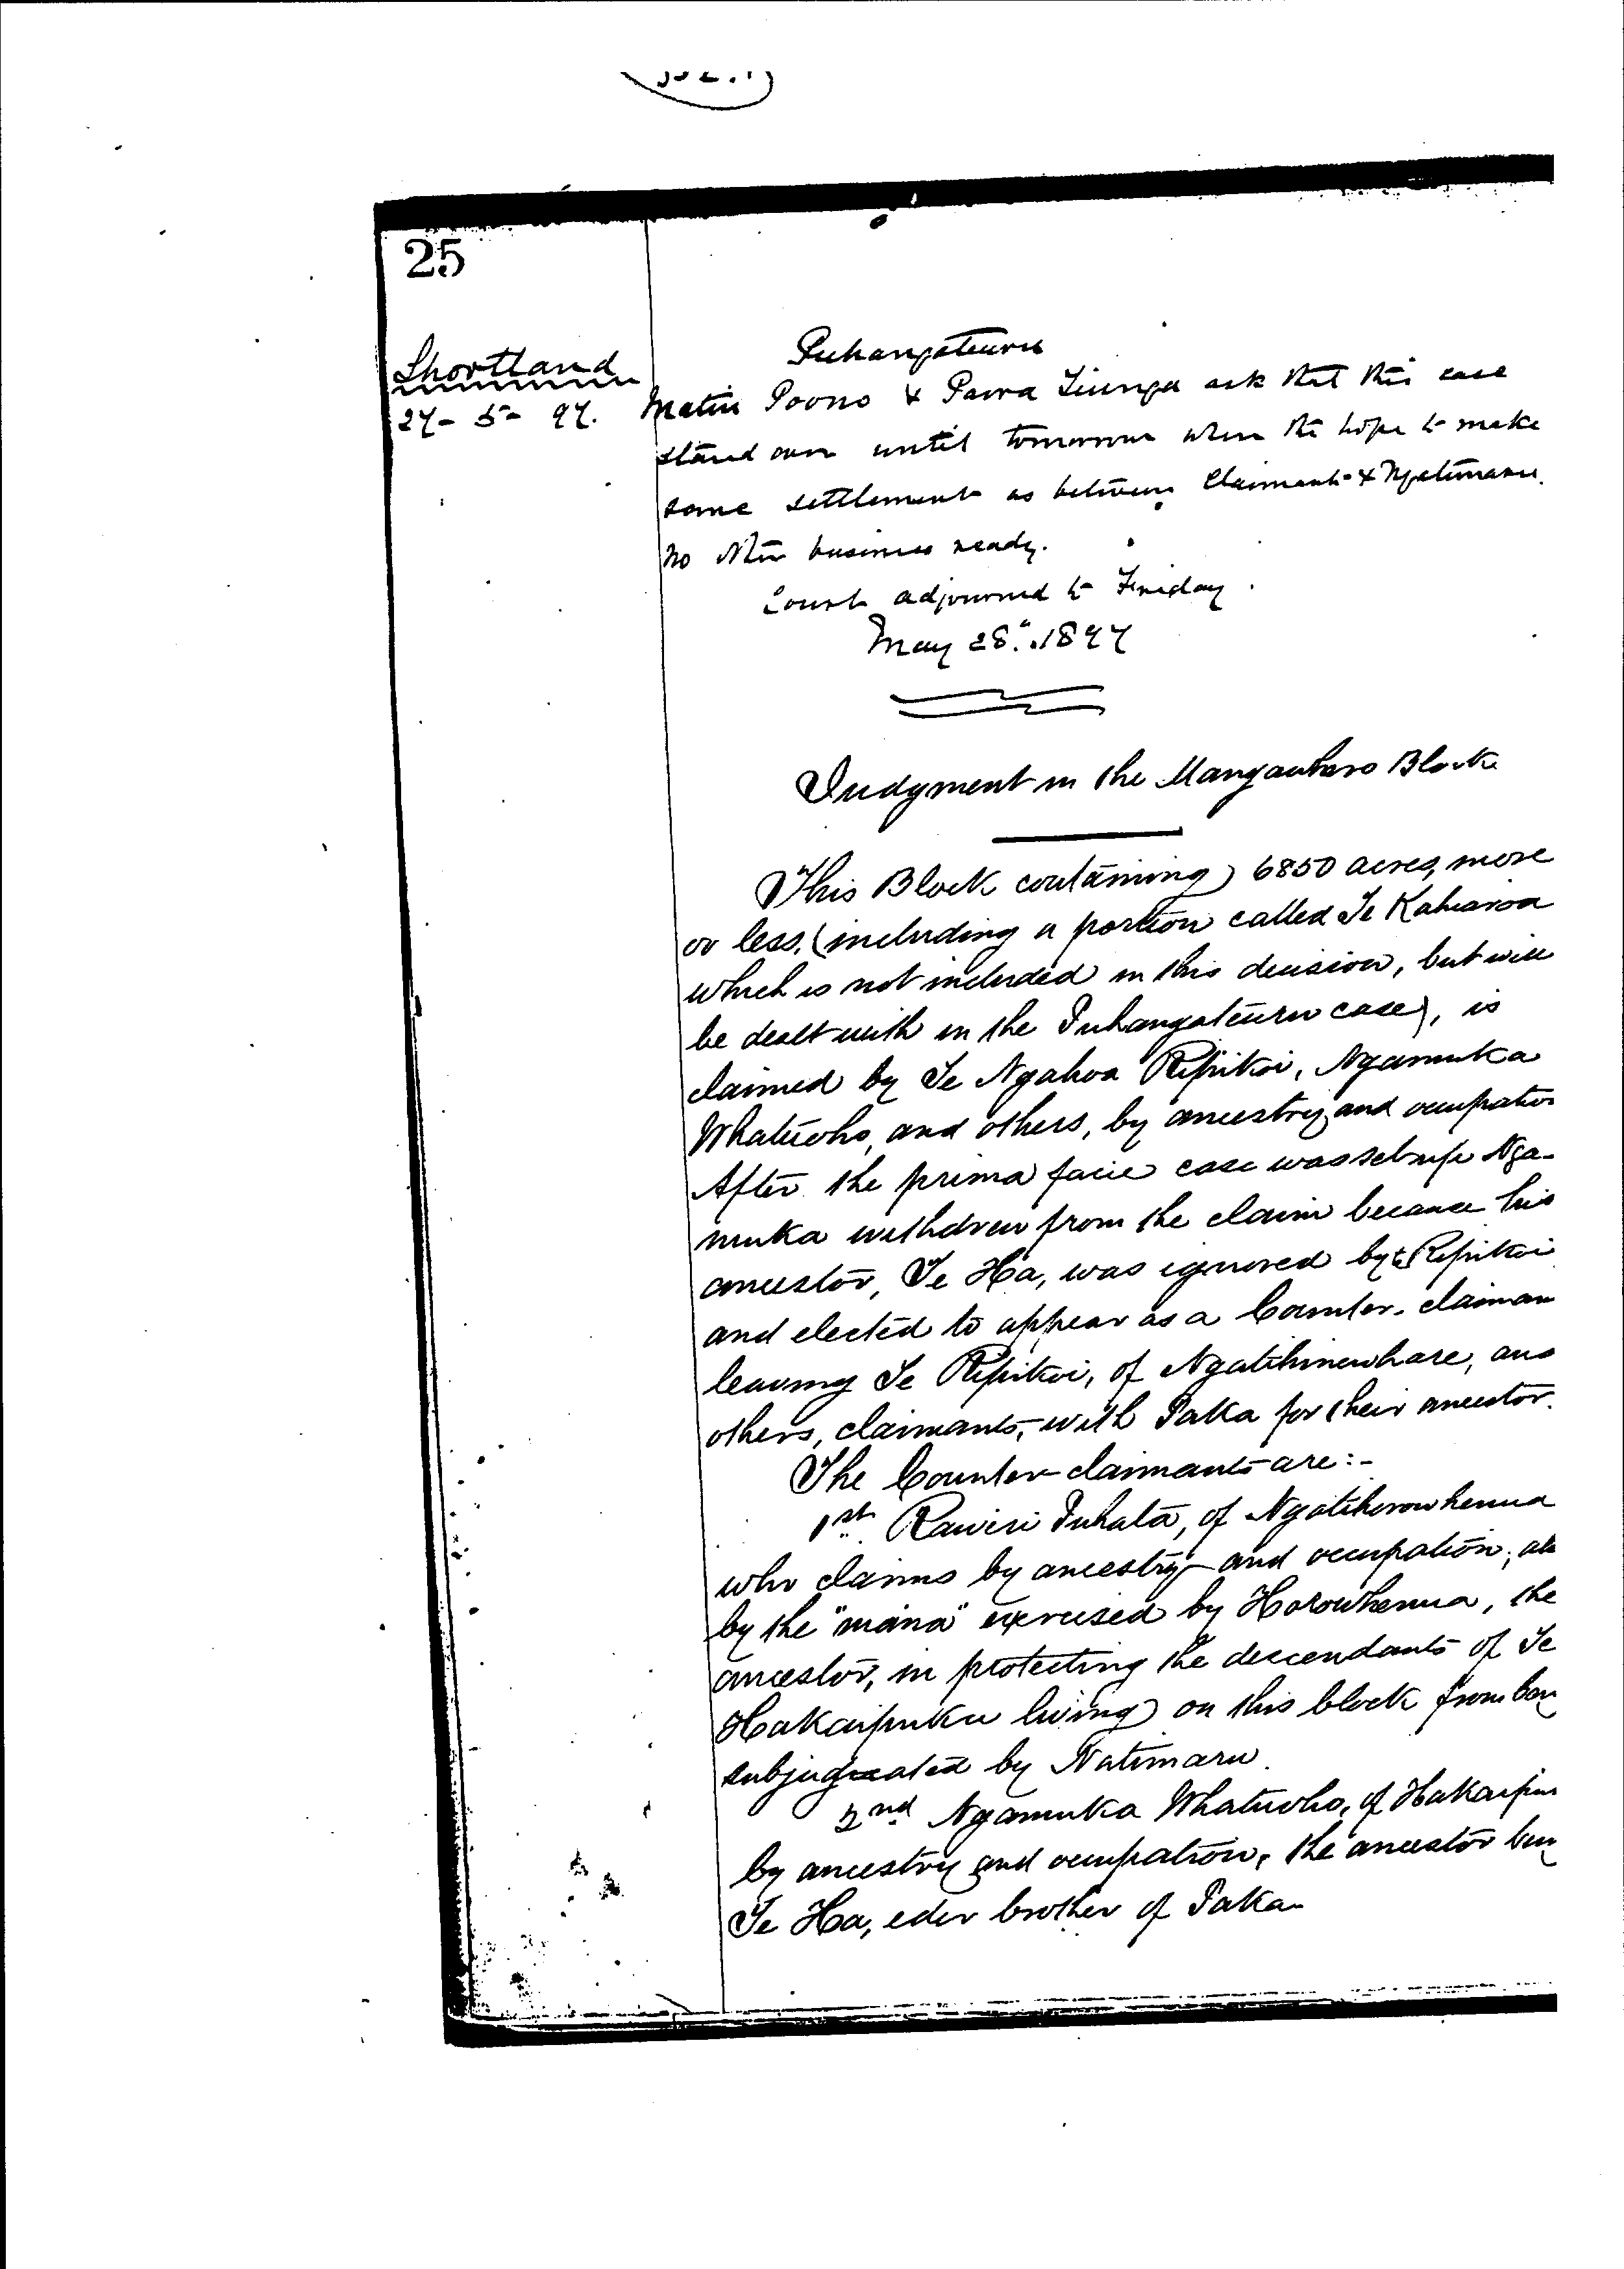 25
Shortland
27-5-97.
Puhangateuru
Matiu Poono & Paora Tiunga ask that this case
stand over until tomorrow when the hope to make
some settlement as between Claimants & Ngatimaru.
No other business ready.
Court adjourned to Friday.
May 28th. 1897
Judgment in the Mangauhero Block
This Block containing 6850 acres, more
or less, (including a portion called Te Kaharoa
which is not included in this decision, but will
be dealt with in the Puhangateuru case), is
claimed by Te Ngahoa Ripikoi, Ngamuka
Whatuoho, and others, by ancestry and occupation
After the prima facie case was set up Nga-
muka withdrew from the claim because his
ancestor, Te Ha, was ignored by Te Ripikoi
and elected to appear as a Counter-claiman
leaving Te Ripikoi, of Ngatihinewhare, and
others, claimants, with Paka for their ancestor.
The Counter-claimants are:-
1st. Rawiri Puhata, of Ngatihorowhenua
who claims by ancestry and occupation; als
by the "mana" exercised by Horowhenua, the
ancestor, in protecting the descendants of Te
Hakaipuku living on this block from
subjugated by Natimaru.
2nd Ngamuka Whatuoho, of Hakaipu
by ancestry and occupation, the ancestor
Te Ha, eder brother of Paka-